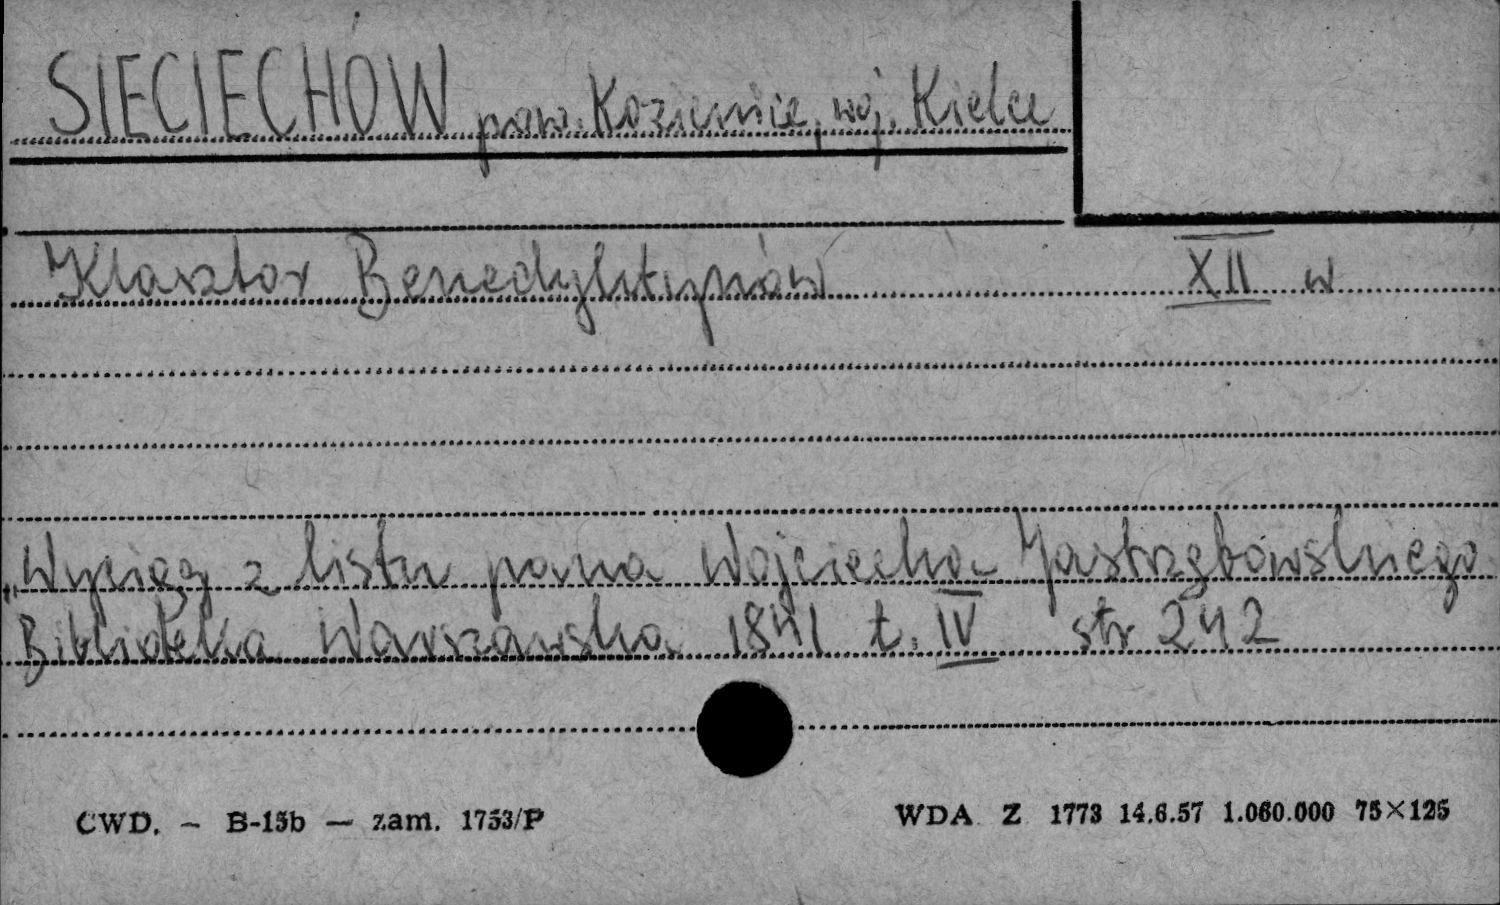 SIECIECHÓW pow. Kozienice, woj. Kielce
Klasztor Benedyktynów XII w
„Wyciąg z listu pana Wojciecha Jastrzębowskiego
Biblioteka Warszawska 1841 t. IV str 242
CWD. – B-15b — zam. 1753/P WDA Z 1773 14.6.57 1.060.000 75×125